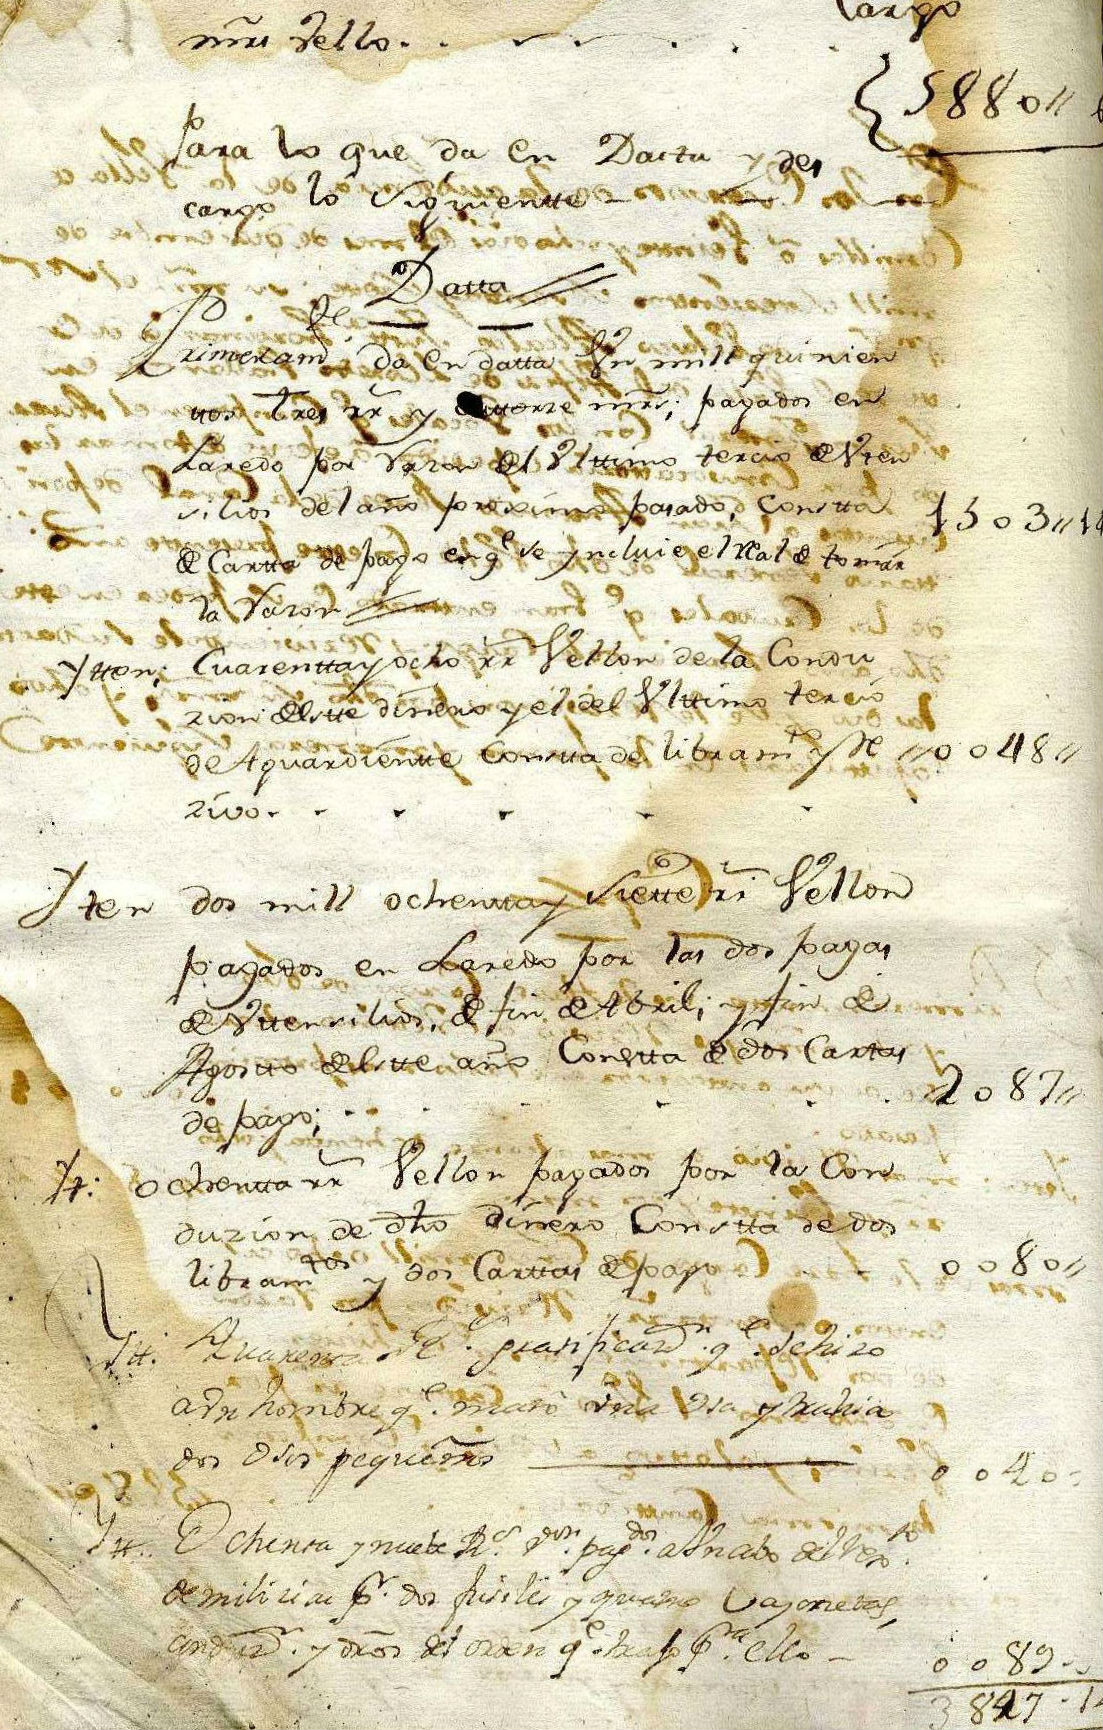 Cargo
mrs Vello
5880//
Para lo que da en Datta y des
cargo lo siguiente
Datta
Primeramte da en datta Un mill quinien
ttos tres rr y cattorze mrs; pagados en
Laredo por razon del Ulttimo tercio de Uten
silios del año proximo pasado, Constta
de Carta de pago en qe se yncluie el Real de tomar
la razon
1503//14
Ytten; Cuarentta y ocho rr Vellon de la Condu
zion de estte dinero y el del Ulttimo tercio
de Aguardientte Constta de libramto y Re
zivo
//0048//
Yten dos mill ochentta y Siette rs Vellon
pagados en Laredo por las dos pagas
de Uttensilios, de fin de Abril; y fin de
Agostto de estte año Constta de dos Cartas
de pago;
2087//
Yt: ochentta rr Vellon pagados por la Con
duzion de dho dinero Constta de dos
libramtos y dos Carttas de pago
0080//
Ytt. Quarenta Rs. gratificazn. qe. se hizo
a Un hombre qe. mató una Osa y trahia
dos Osos pequeños
0040
Ytt. Ochenta y nuebe Rs. von. pagdos. a Un cabo del
de milizias pr. dos fusiles y quatro bayonetas,
y dros del orden qe. trajo pra. ello
0089
3847 - 14